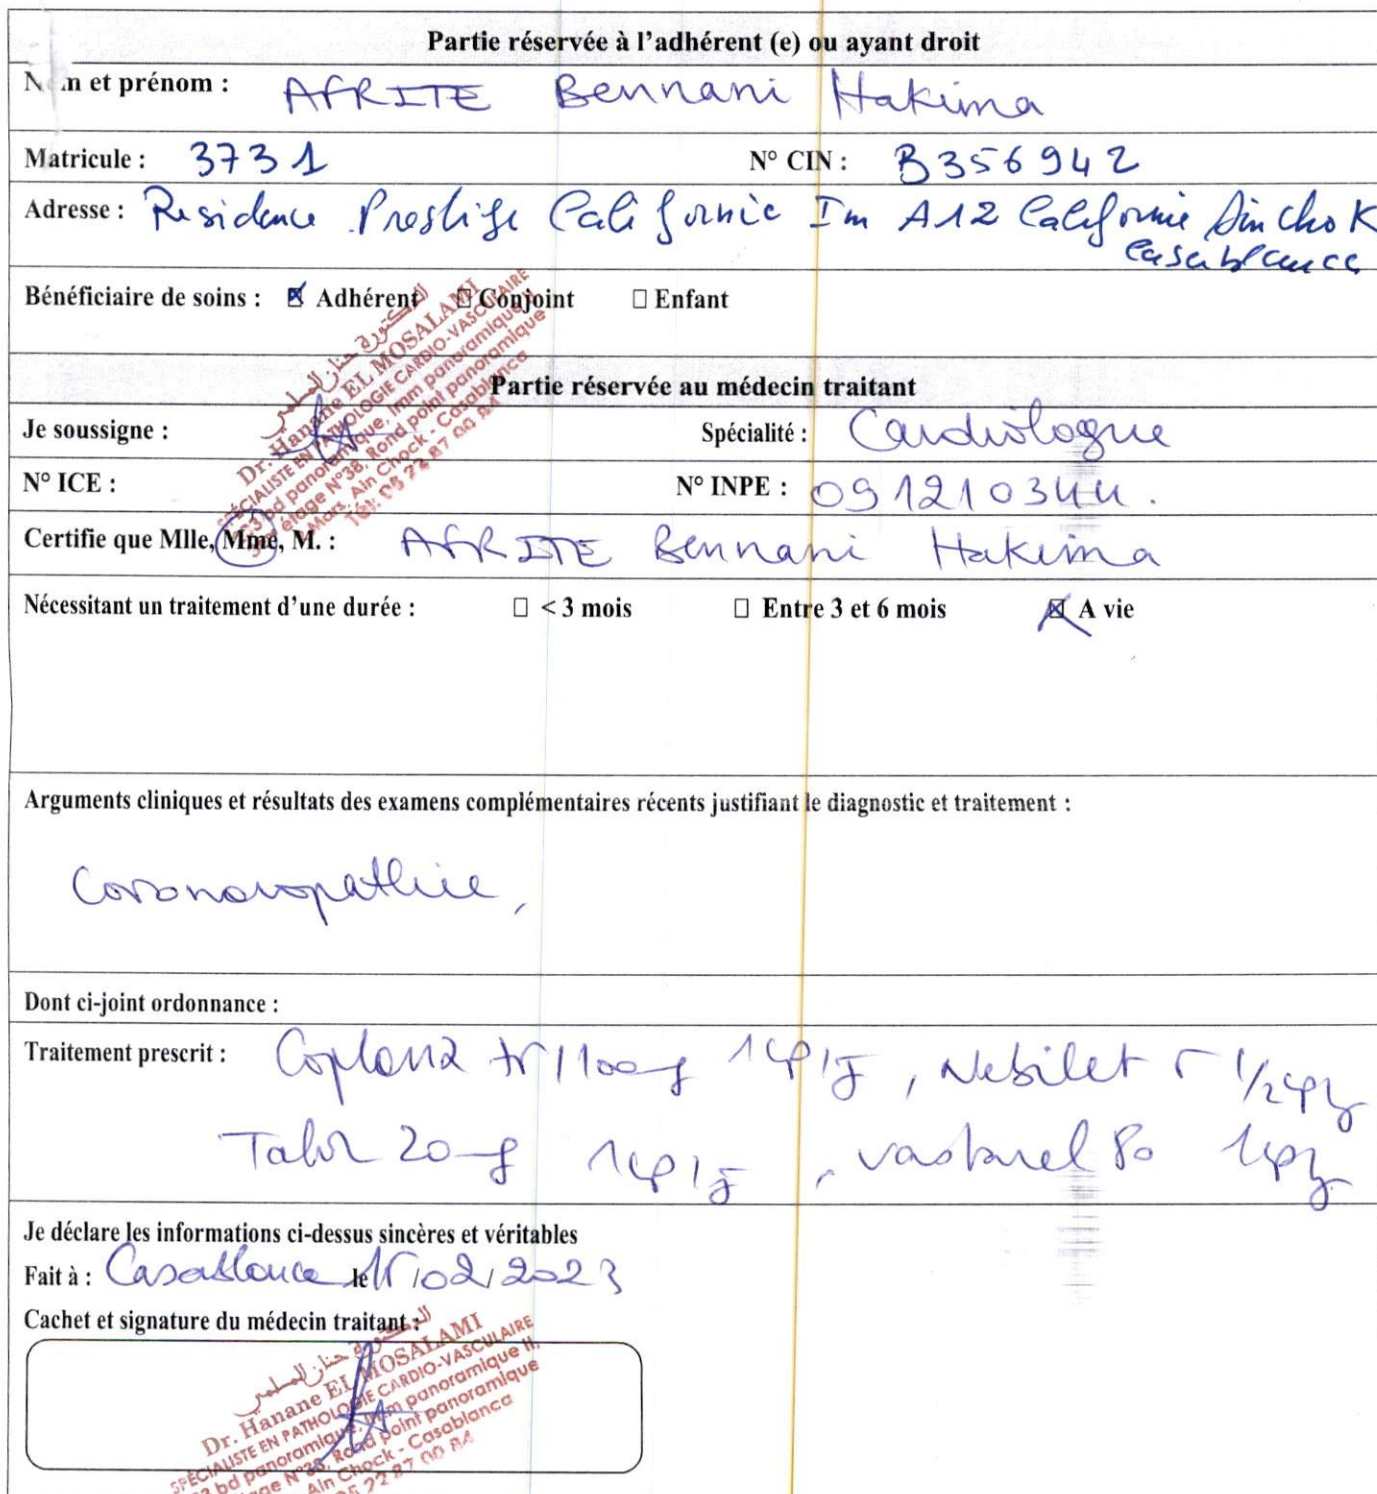 Partie réservée à l'adhérent (e) ou ayant droit
Nom et prénom : AFRITE Bennani Hakima
Matricule : 3731 N° CIN : B356942
Adresse : Residence Prestige Californie Im A12 Californie Ain Chok
Casablanca
Bénéficiaire de soins : ☒ Adhérent ☐ Conjoint ☐ Enfant
الدكتورة حنان المسلمي
Dr. Hanane EL MOSALAMI
SPÉCIALISTE EN PATHOLOGIE CARDIO-VASCULAIRE
bd panoramique, Imm panoramique II,
étage N°38, Rond point panoramique
Ain Chock - Casablanca
Tél: 05 22 87 00 84
Partie réservée au médecin traitant
Je soussigne : Spécialité : Cardiologue
N° ICE : N° INPE : 091210344.
Certifie que Mlle, Mme, M. : AFRITE Bennani Hakima
Nécessitant un traitement d'une durée : ☐ < 3 mois ☐ Entre 3 et 6 mois ☒ A vie
Arguments cliniques et résultats des examens complémentaires récents justifiant le diagnostic et traitement :
Coronaropathie,
Dont ci-joint ordonnance :
Traitement prescrit : 1cp/J, Nebilet 5 1/2cp/J
Tahor 20mg 1cp/J, vastarel 80 1cp/J
Je déclare les informations ci-dessus sincères et véritables
Fait à : Casablanca le 15/02/2023
Cachet et signature du médecin traitant :
الدكتورة حنان المسلمي
Dr. Hanane EL MOSALAMI
SPÉCIALISTE EN PATHOLOGIE CARDIO-VASCULAIRE
bd panoramique, Imm panoramique II,
N°38, Rond point panoramique
Ain Chock - Casablanca
05 22 87 00 84